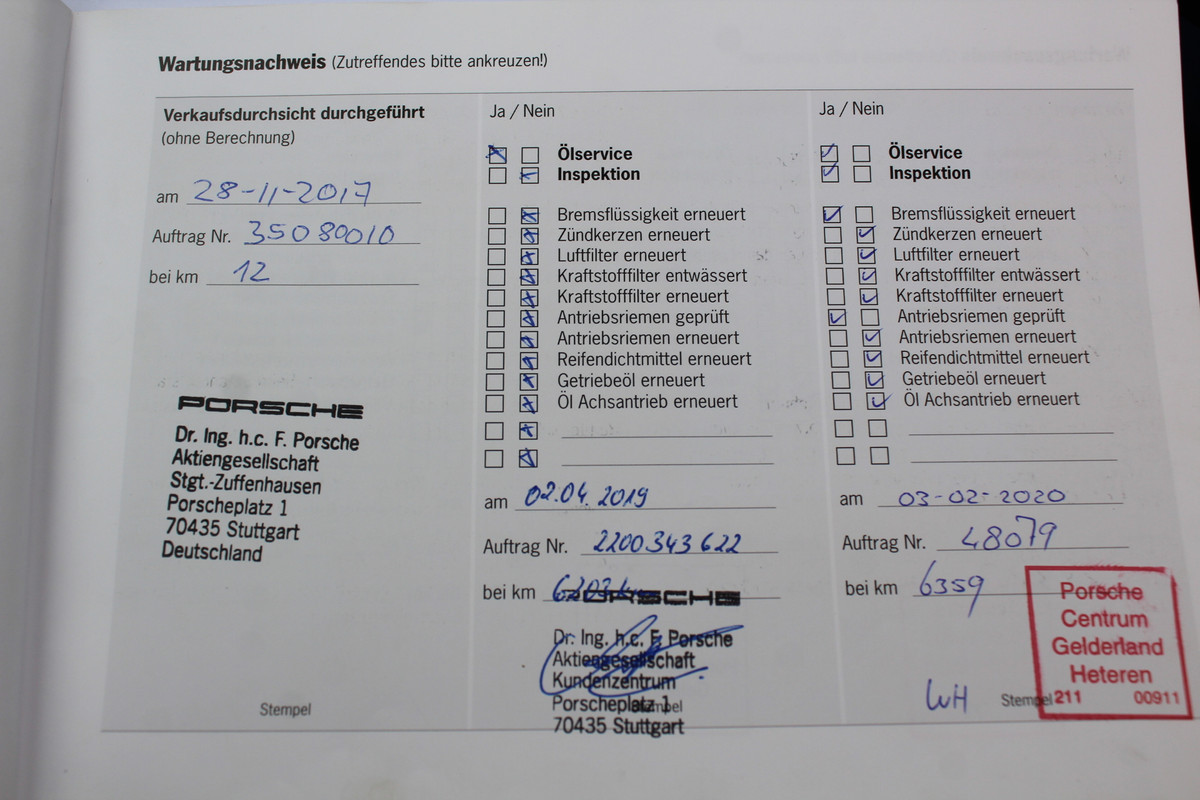 Wartungsnachweis (Zutreffendes bitte ankreuzen!)
Verkaufsdurchsicht durchgeführt
(ohne Berechnung)
am 28-11-2017
Auftrag Nr. 35080010
bei km 12
PORSCHE
Dr. Ing. h.c. F. Porsche
Aktiengesellschaft
Stgt.-Zuffenhausen
Porscheplatz 1
70435 Stuttgart
Deutschland
Stempel
Ja / Nein
Ölservice
Inspektion
Bremsflüssigkeit erneuert
Zündkerzen erneuert
Luftfilter erneuert
Kraftstofffilter entwässert
Kraftstofffilter erneuert
Antriebsriemen geprüft
Antriebsriemen erneuert
Reifendichtmittel erneuert
Getriebeöl erneuert
Öl Achsantrieb erneuert
am 02.04.2019
Auftrag Nr. 2200343622
bei km
PORSCHE
Dr. Ing. h.c. F. Porsche
Aktiengesellschaft
Kundenzentrum
Porscheplatz 1
Stempel
70435 Stuttgart
Ja / Nein
Ölservice
Inspektion
Bremsflüssigkeit erneuert
Zündkerzen erneuert
Luftfilter erneuert
Kraftstofffilter entwässert
Kraftstofffilter erneuert
Antriebsriemen geprüft
Antriebsriemen erneuert
Reifendichtmittel erneuert
Getriebeöl erneuert
Öl Achsantrieb erneuert
am 03-02-2020
Auftrag Nr. 48079
bei km 6359
Porsche
Centrum
Gelderland
Heteren
211 00911
WH
Stempel